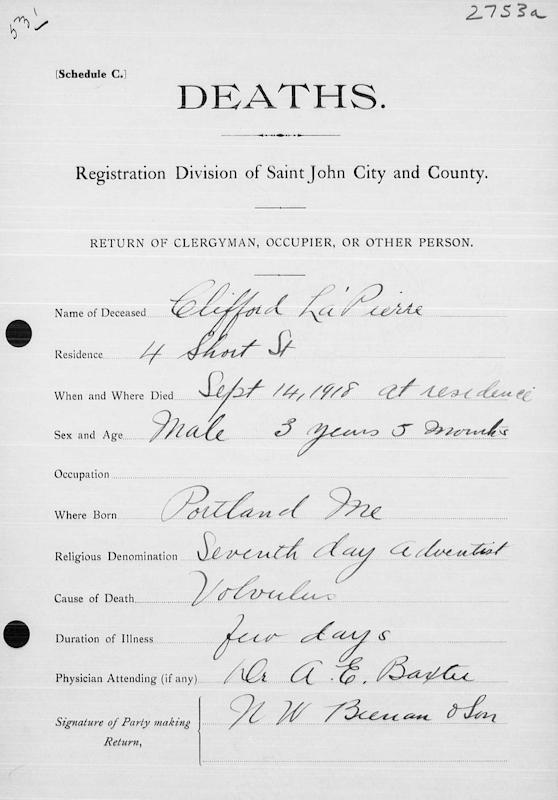 531
2753a
[Schedule C.]
DEATHS.
Registration Division of Saint John City and County.
RETURN OF CLERGYMAN, OCCUPIER, OR OTHER PERSON.
Name of Deceased Clifford La'Pierre
Residence 4 Short St
When and Where Died Sept 14, 1918 at residence
Sex and Age Male 3 years 5 months
Occupation
Where Born Portland Me
Religious Denomination Seventh day adventist
Cause of Death Volvulus
Duration of Illness few days
Physician Attending (if any) Dr A. E. Baxter
Signature of Party making N W Brenan & Son
Return,